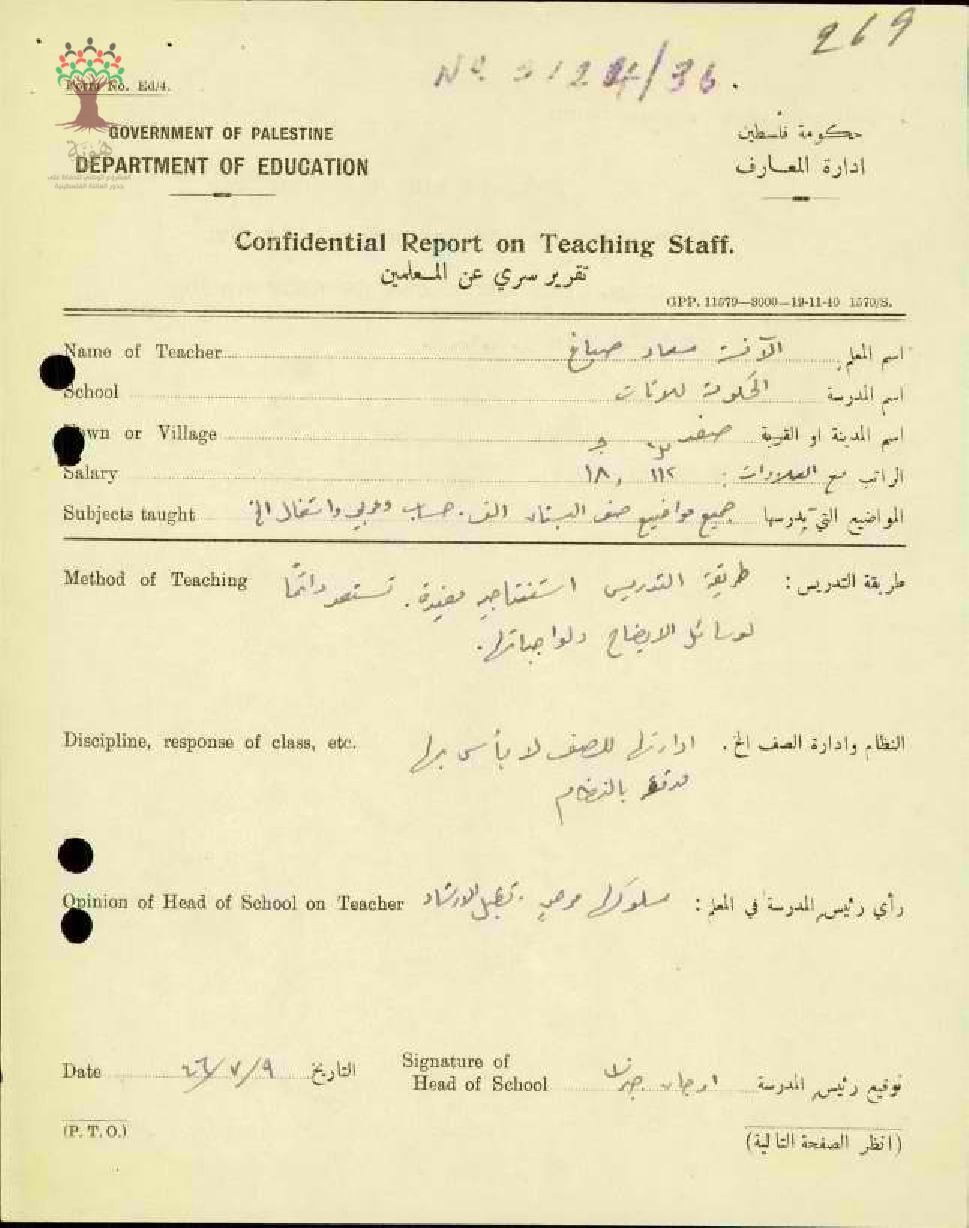 269
No 3124/36.
Form No. Ed/4.
GOVERNMENT OF PALESTINE
حكومة فلسطين
DEPARTMENT OF EDUCATION
ادارة المعارف
هوية
المشروع الوطني للحفاظ على
جذور العائلة الفلسطينية
Confidential Report on Teaching Staff.
تقرير سري عن المعلمين
GPP. 11579—3000—19-11-40 1570/S.
Name of Teacher الآنسة سعاد صباغ اسم المعلم
School الحكومة للبنات اسم المدرسة
Town or Village صفد اسم المدينة او القرية
Salary الراتب مع العلاوات :
Subjects taught جميع مواضيع صف البستان الف. حساب وعربي واشغال الخ المواضيع التي يدرسها
Method of Teaching طريقة التدريس استنتاجيه مفيدة. تستعد دائمًا طريقة التدريس :
لوسائل الايضاح ولواجباتها.
Discipline, response of class, etc. ادارتها للصف لا بأس بها النظام وادارة الصف الخ.
بالنظام
Opinion of Head of School on Teacher سلوكها مرضي. تقبل الارشاد رأي رئيس المدرسة في المعلم :
Date ٤٦/٧/٩ التاريخ
Signature of
Head of School توقيع رئيس المدرسة
(P. T. O.)
(انظر الصفحة التالية)